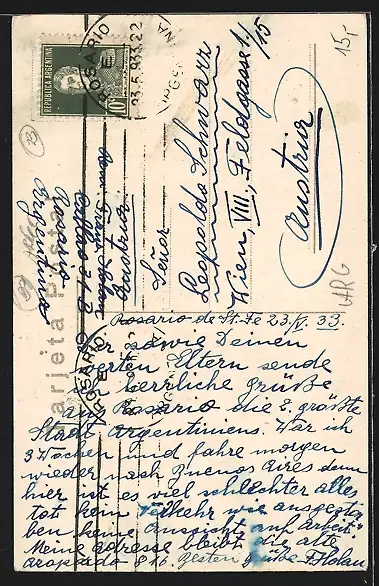 REPUBLICA ARGENTINA
10
ROSARIO
23.5.933.22
ARGENTINA
15,-
Tarjeta Postal
Señor
Leopoldo Schwarz
Wien, VIII., Feldgasse 1./15
Austria
ARG
Rosario
Argentina
Rosario de St. Fe 23./V. 33.
sowie Deinen
werten Eltern sende
herrliche Grüße
aus Rosario die 2. größte
Stadt Argentiniens. War ich
3 Wochen und fahre morgen
wieder nach Buenos Aires denn
hier ist es viel schlechter alles
tot kein Verkehr wie ausgestorben
keine Aussicht auf Arbeit
Meine Adresse bleibt die alte
besten Grüße